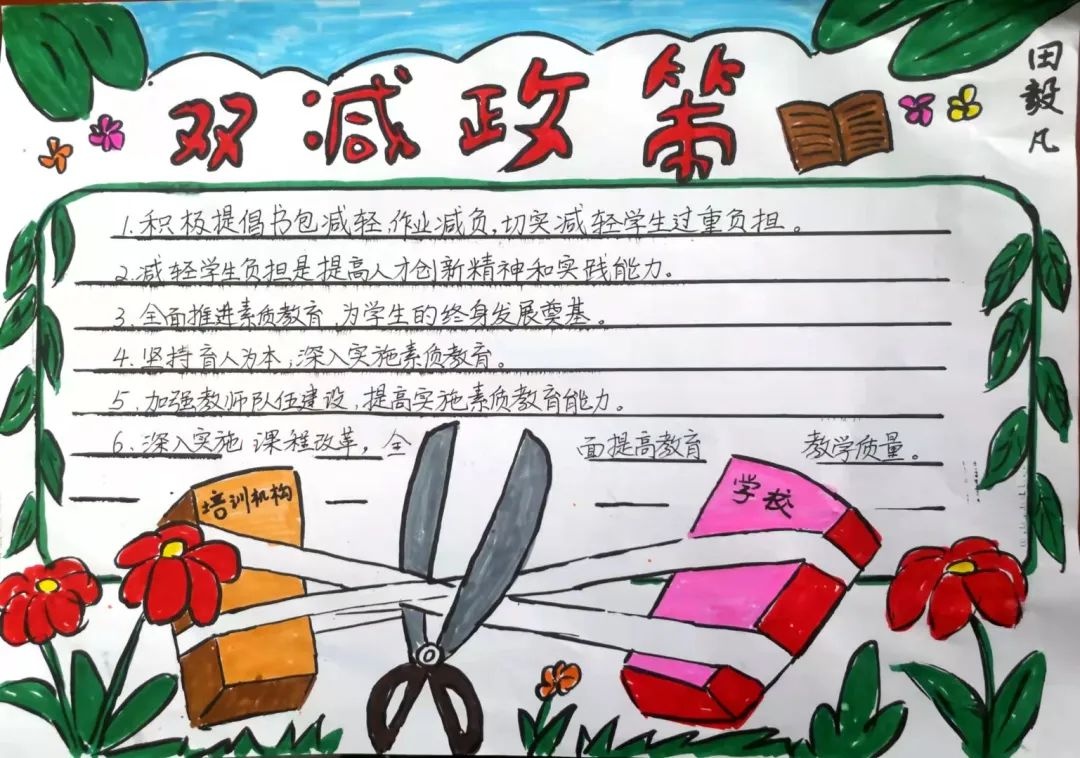 双减政策
田毅凡
1.积极提倡书包减轻,作业减负,切实减轻学生过重负担。
2.减轻学生负担是提高人才创新精神和实践能力。
3.全面推进素质教育,为学生的终身发展奠基。
4.坚持育人为本,深入实施素质教育。
5.加强教师队伍建设,提高实施素质教育能力。
6.深入实施 课程改革,全 面提高教育 教学质量。
培训机构
学校